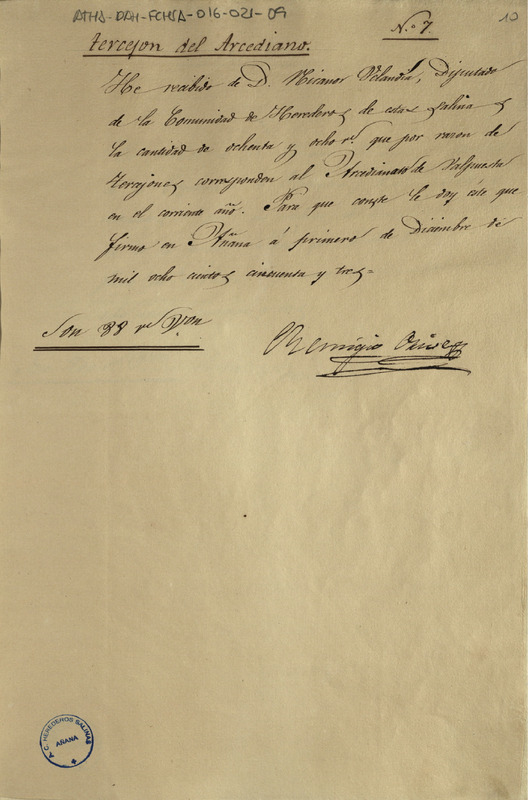 ATHA-DAH-FCHSA-016-021-09
10
Nº 7.
tercejon del Arcediano.
He recibido de D. Nicanor Velandia, Diputado
de la Comunidad de Herederos de estas Salinas
la cantidad de ochenta y ocho rs. que por razon de
tercejones corresponden al Arcedianato de Valpuesta
en el corriente año. Para que conste le doy este que
firmo en Añana á primero de Diciembre de
mil ocho cientos cincuenta y tres=
Son 88 rs Von
Remigio
Y C. HEREDEROS SALINAS
AÑANA